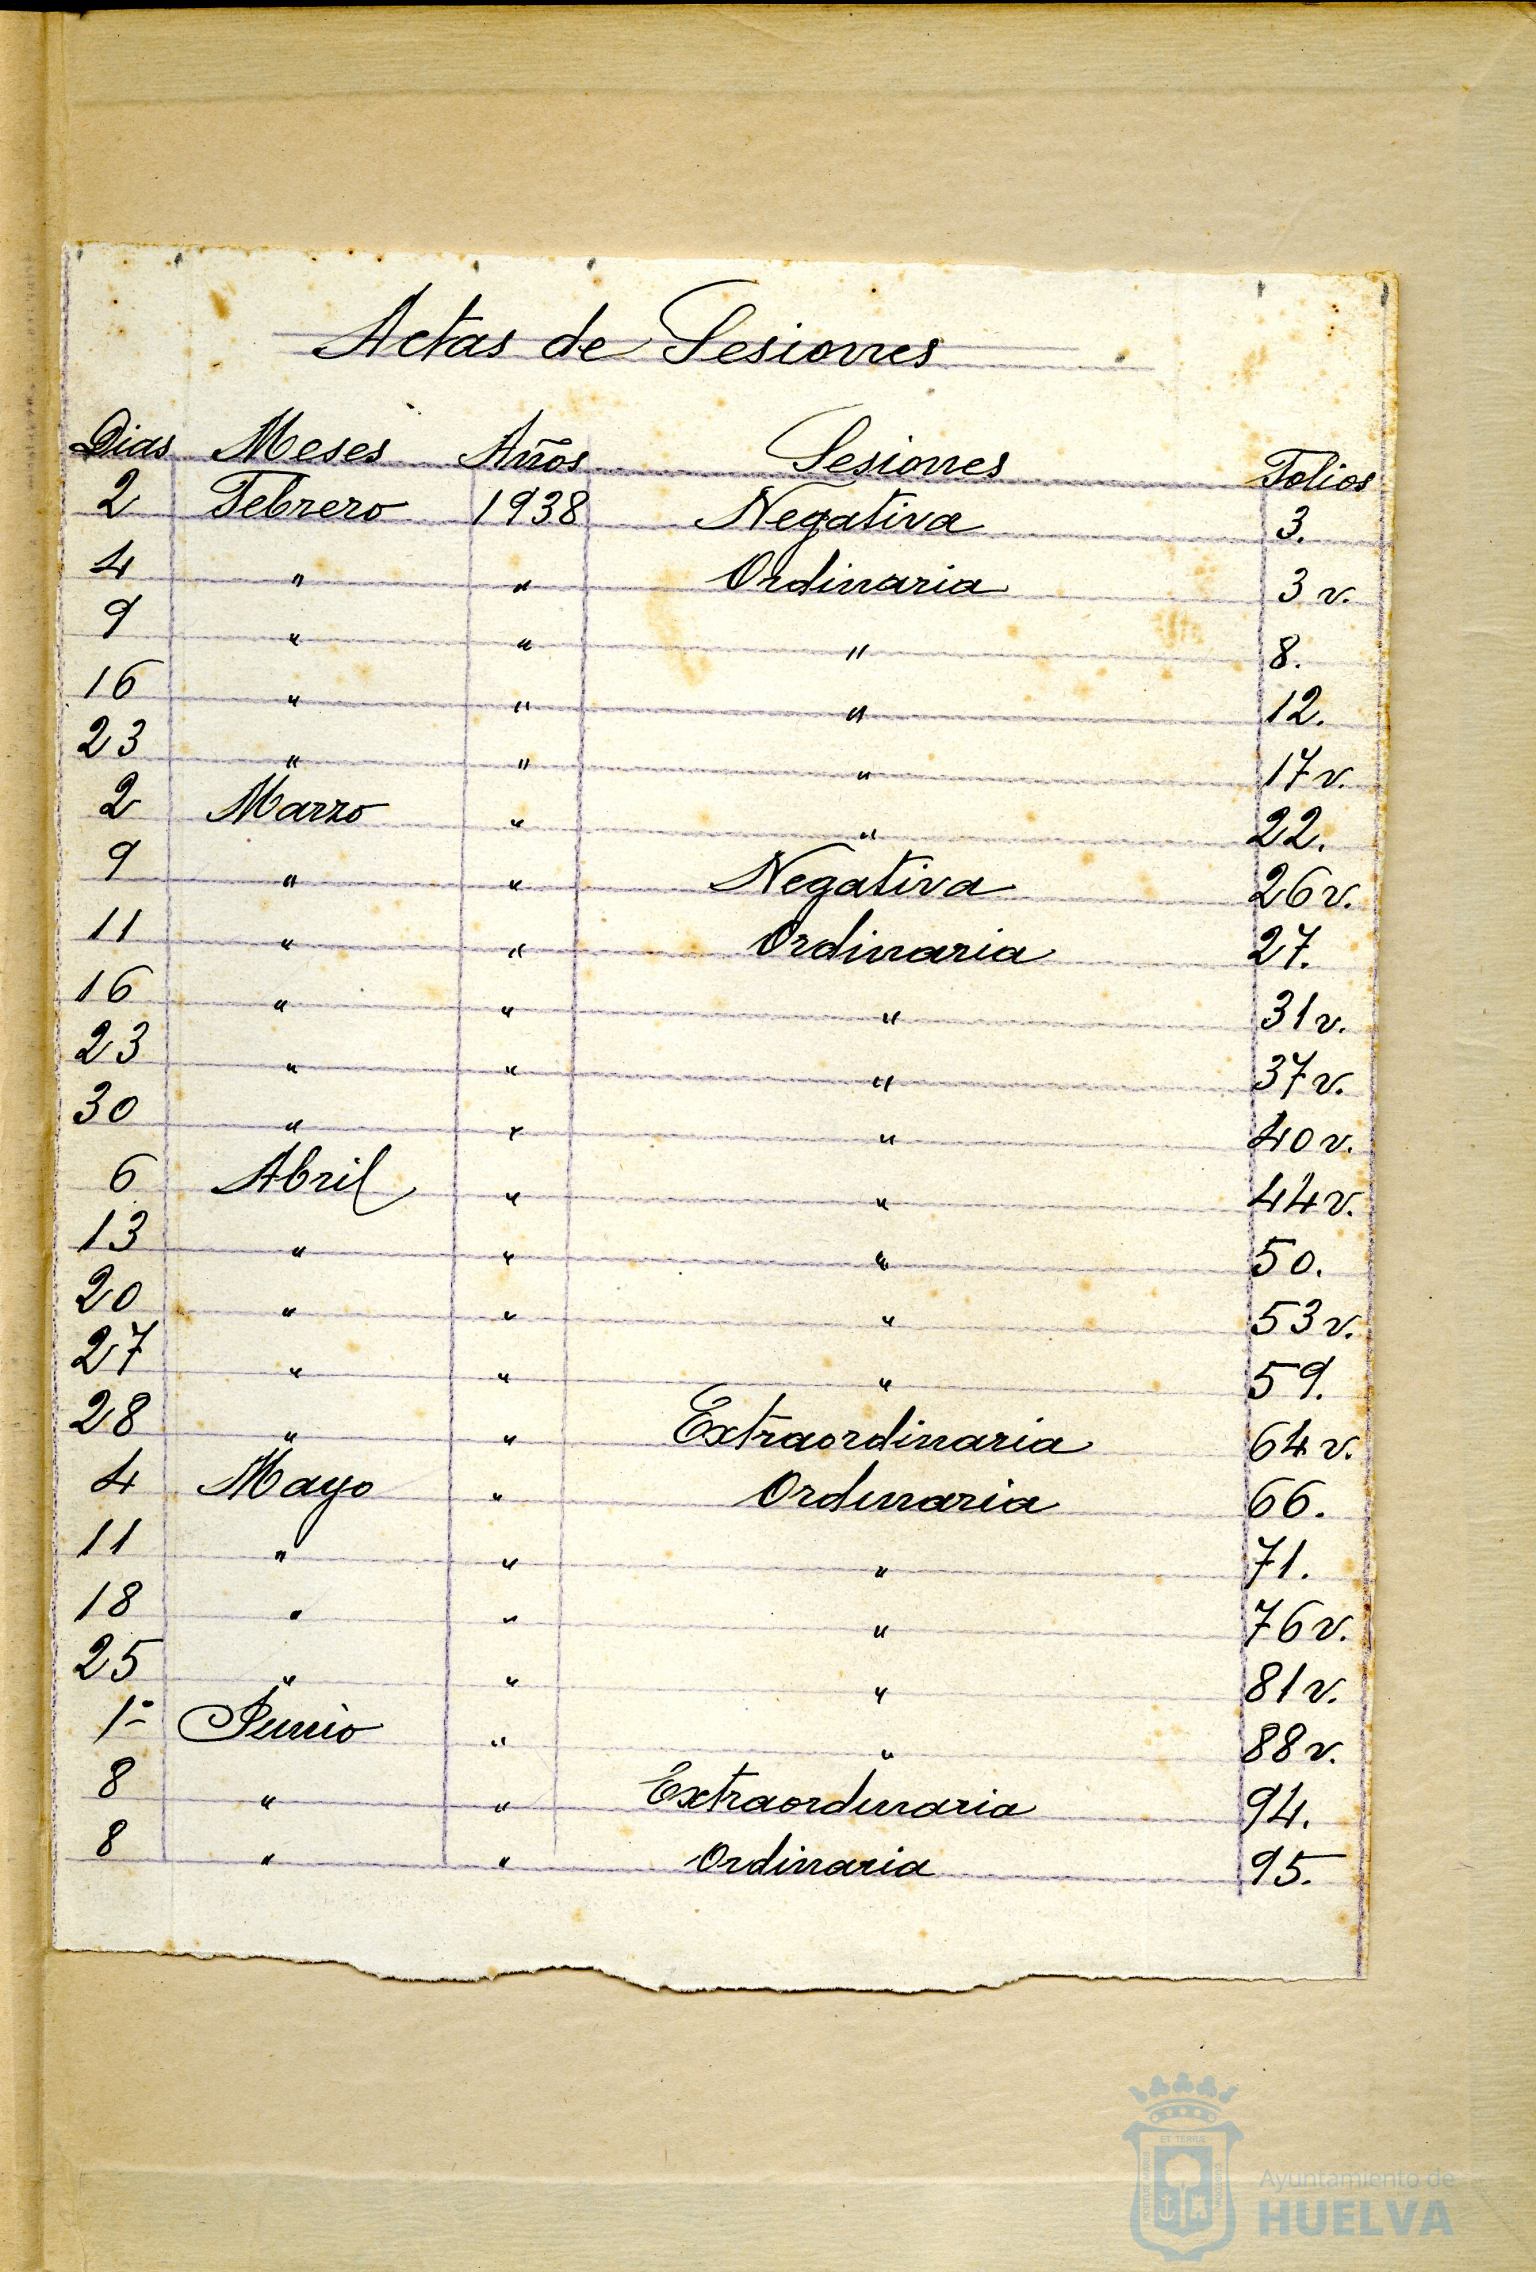 Actas de Sesiones
Dias Meses Años Sesiones Folios
2 Febrero 1938 Negativa 3.
4 " " Ordinaria 3 v.
9 " " " 8.
16 " " " 12.
23 " " " 17 v.
2 Marzo " " 22.
9 " " Negativa 26 v.
11 " " Ordinaria 27.
16 " " " 31 v.
23 " " " 37 v.
30 " " " 40 v.
6 Abril " " 44 v.
13 " " " 50.
20 " " " 53 v.
27 " " " 59.
28 " " Extraordinaria 64 v.
4 Mayo " Ordinaria 66.
11 " " " 71.
18 " " " 76 v.
25 " " " 81 v.
1º Junio " " 88 v.
8 " " Extraordinaria 94.
8 " " Ordinaria 95.
ET TERRÆ
Ayuntamiento de
HUELVA